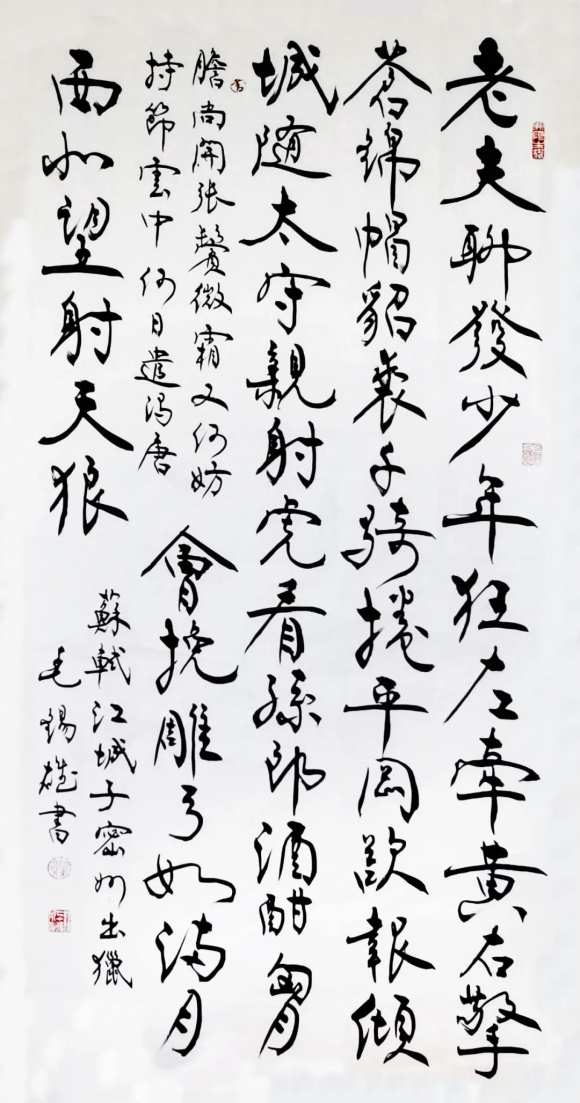 老夫聊發少年狂左牽黄右擎
蒼錦帽貂裘千騎捲平岡欲報傾
城隨太守親射虎看孫郎酒酣胷
膽尚開張鬢微霜又何妨
持節雲中何日遣馮唐
會挽雕弓如滿月
西北望射天狼
蘇軾江城子密州出獵
毛錫雄書